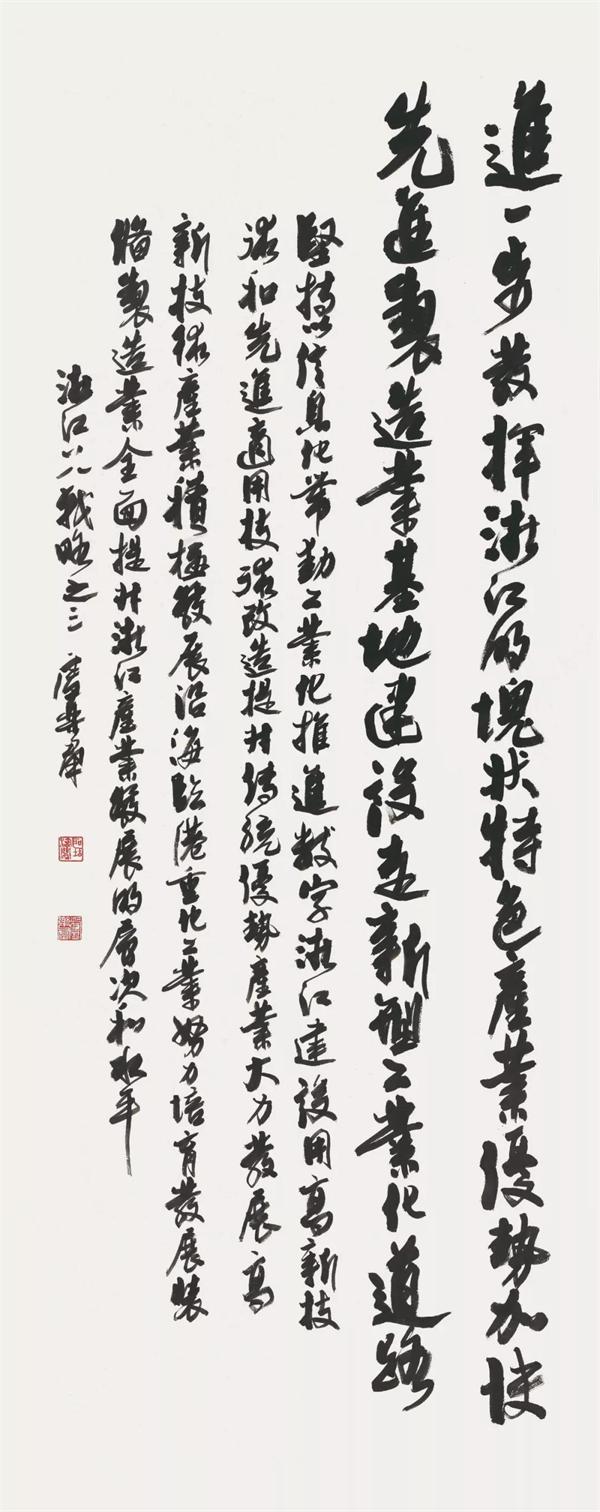 進一步發揮浙江的塊狀特色產業優勢加快
先進製造業基地建設走新型工業化道路
堅持以信息化帶動工業化推進數字浙江建設用高新技
術和先進適用技術改造提升傳統優勢產業大力發展高
新技術產業積極發展沿海臨港重化工業努力培育發展裝
備製造業全面提升浙江產業發展的層次和水平
浙江八八戰略之三